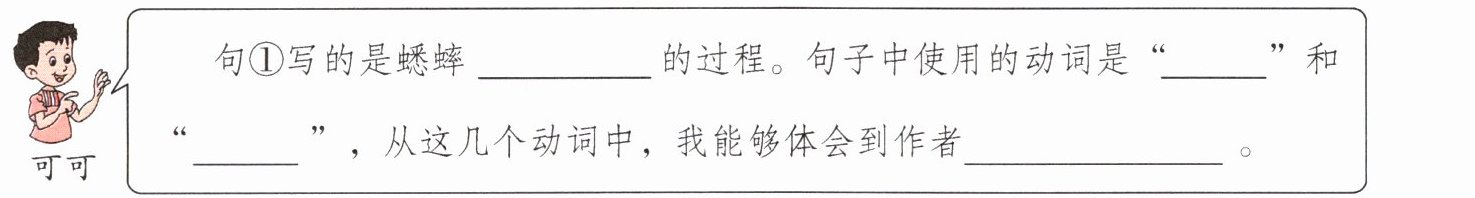 句①写的是蟋蟀__________的过程。句子中使用的动词是“______”和
“______”，从这几个动词中，我能够体会到作者______________。
可可